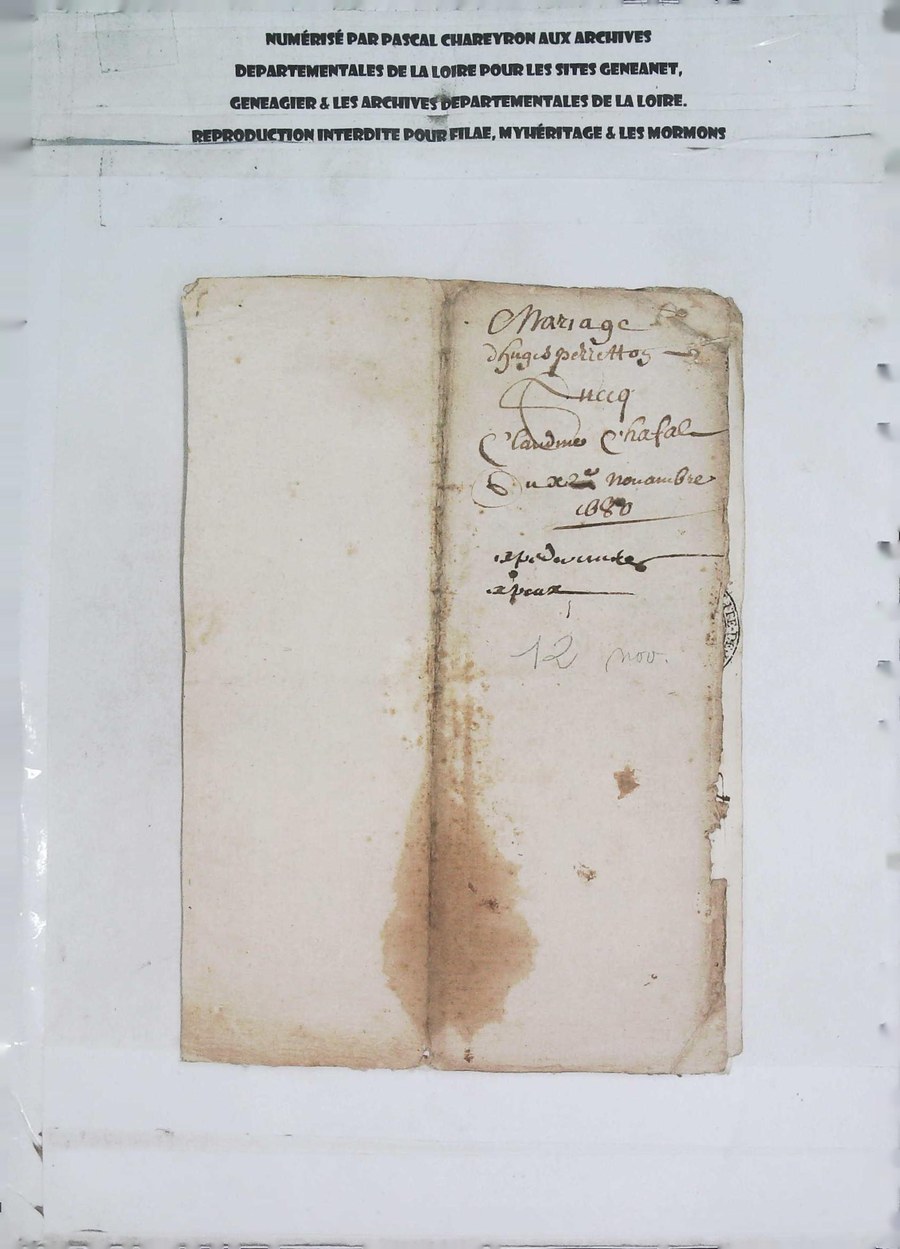 NUMÉRISÉ PAR PASCAL CHAREYRON AUX ARCHIVES
DEPARTEMENTALES DE LA LOIRE POUR LES SITES GENEANET,
GENEAGIER & LES ARCHIVES DEPARTEMENTALES DE LA LOIRE.
REPRODUCTION INTERDITE POUR FILAE, MYHÉRITAGE & LES MORMONS
Mariage
d'huges
Claudine Chafal
Du nouambre
1680
12 nov.